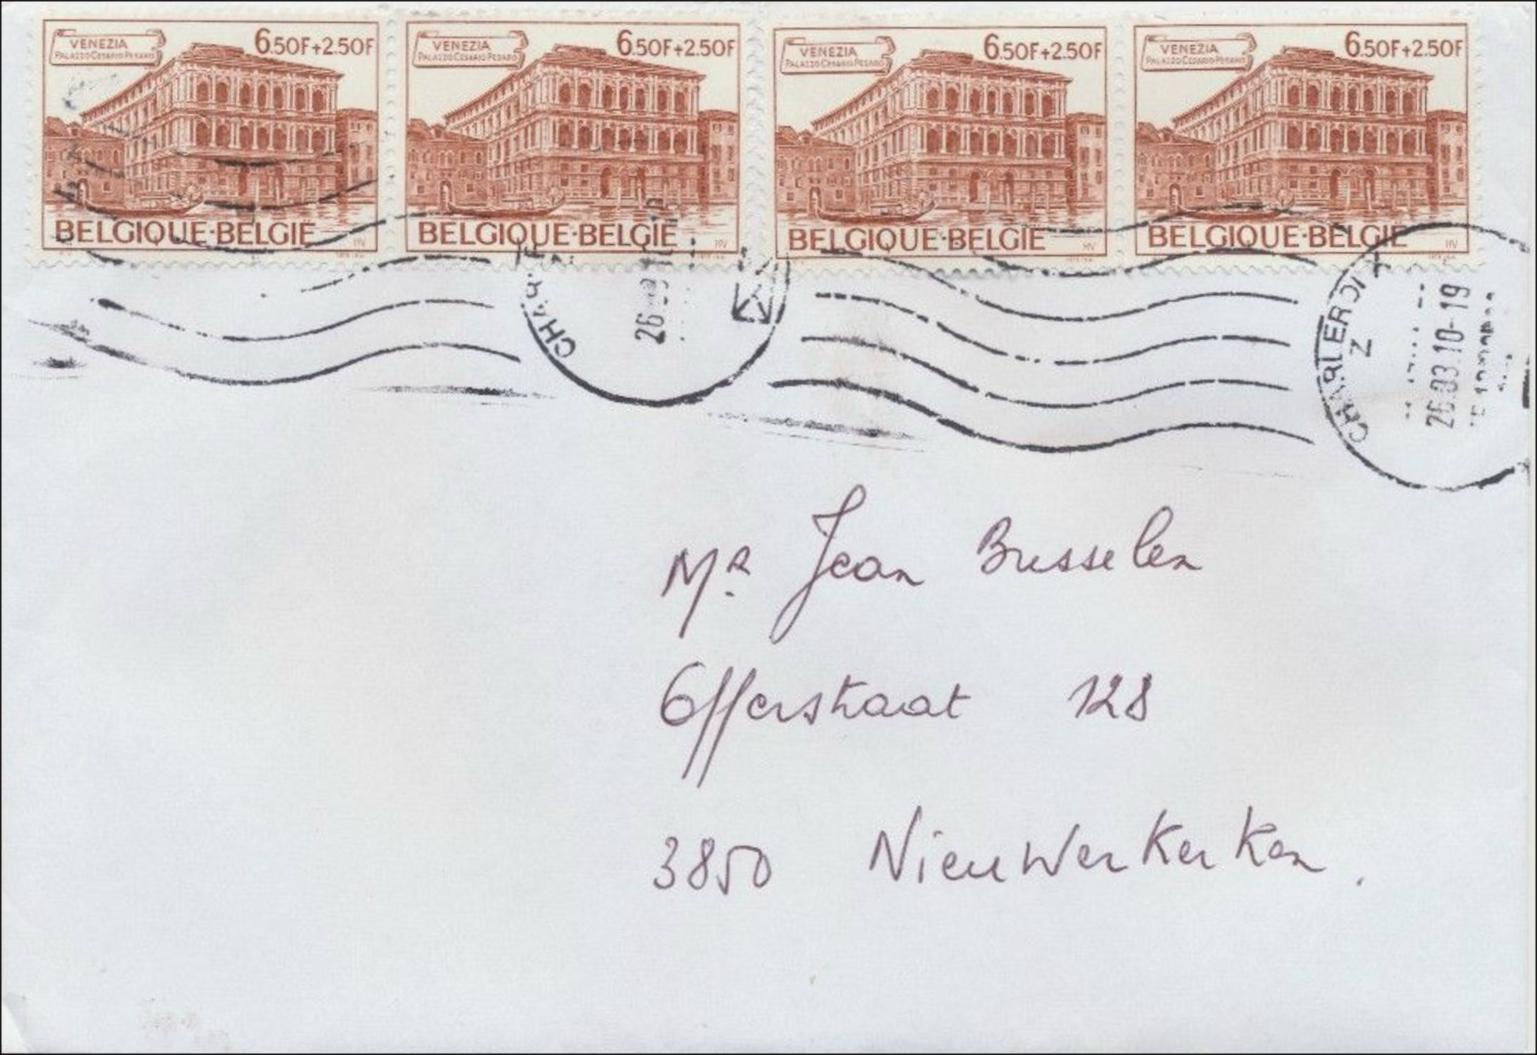 VENEZIA
PALAZZO CESARIO PESARO
6.50F+2.50F
BELGIQUE·BELGIE
HV
VENEZIA
PALAZZO CESARIO PESARO
6.50F+2.50F
BELGIQUE·BELGIE
HV
VENEZIA
PALAZZO CESARIO PESARO
6.50F+2.50F
BELGIQUE·BELGIE
HV
VENEZIA
PALAZZO CESARIO PESARO
6.50F+2.50F
BELGIQUE·BELGIE
HV
CHARLEROI X
Z
26.03.10-19
Mr. Jean Busselen
Offerstraat 128
3850 Nieuwerkerken.